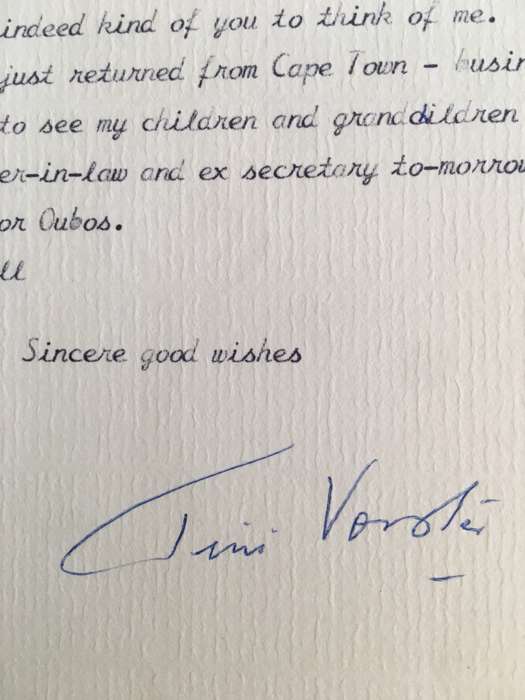 indeed kind of you to think of me.
just returned from Cape Town – busin
to see my children and grandchildren
er-in-law and ex secretary to-morrow
or Oubos.
ll
Sincere good wishes
Tini Vorster